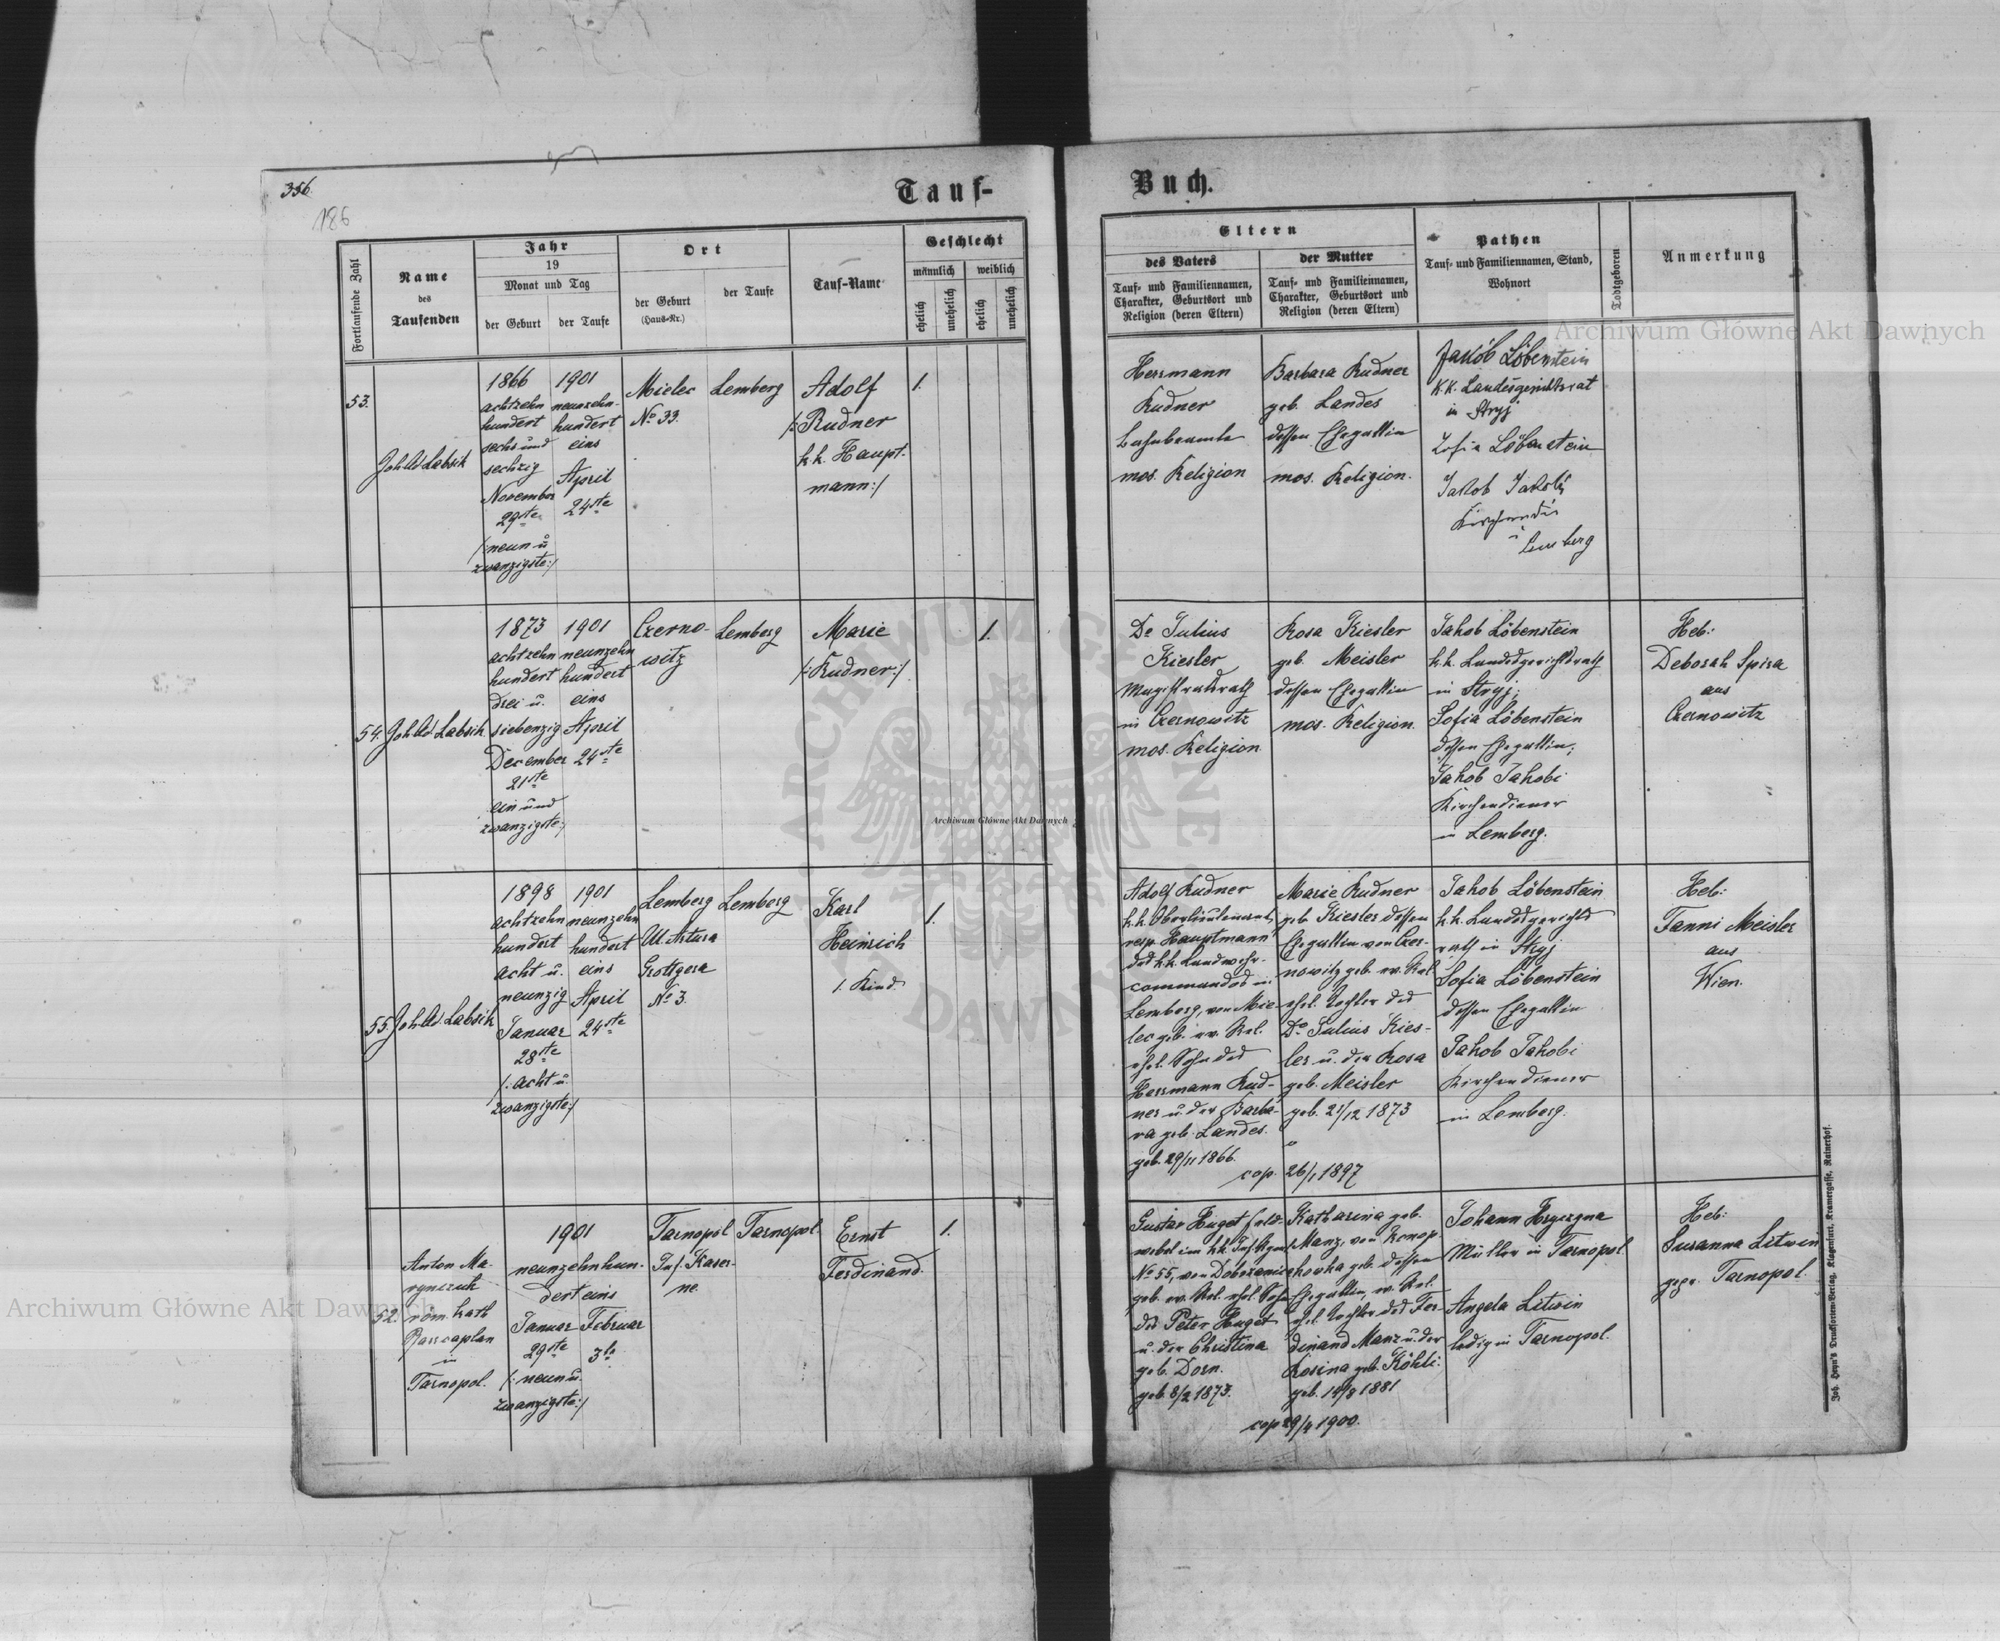 356.
186
Tauf-
Buch.
Fortlaufende Zahl
Name
des
Taufenden
Jahr
19
Monat und Tag
der Geburt
der Taufe
Ort
der Geburt
(Haus-Nr.)
der Taufe
Tauf-Name
Geschlecht
männlich
weiblich
ehelich
unehelich
ehelich
unehelich
Eltern
des Vaters
Tauf- und Familiennamen,
Charakter, Geburtsort und
Religion (deren Eltern)
der Mutter
Tauf- und Familiennamen,
Charakter, Geburtsort und
Religion (deren Eltern)
Pathen
Tauf- und Familiennamen, Stand,
Wohnort
Todtgeboren
Anmerkung
53.
Joh Ad Labsik
1866
achtzehn
hundert
sechs und
sechzig
November
29ste
/:neun u
zwanzigste:/
1901
neunzehn-
hundert
eins
April
24ste
Mielec
No 33.
Lemberg
Adolf
/:Rudner
k.k. Haupt-
mann:/
1.
Herrmann
Rudner
Bahnbeamte
mos. Religion
Barbara Rudner
geb. Landes
dessen Ehegattin
mos. Religion.
Jakób Löbenstein
k.k. Landesgerichtsrat
in Stryj
Zofia Löbenstein
Jakob Jakobi
Kirchendir
Lemberg
54.
Joh Ad. Labsik
1873
achtzehn
hundert
drei u.
siebenzig
December
21ste
ein und
zwanzigste:/
1901
neunzehn
hundert
eins
April
24ste
Czerno-
witz
Lemberg
Marie
/:Rudner:/
1.
Dr Julius
Kiesler
Magistratsrath
in Czernowitz
mos. Religion
Rosa Kiesler
geb. Meisler
dessen Ehegattin
mos. Religion.
Jakob Löbenstein
k.k. Landesgerichtsrath
in Stryj;
Sofia Löbenstein
dessen Ehegattin;
Jakob Jakobi
Kirchendiener
in Lemberg.
Heb:
Deborah Spira
aus
Czernowitz
55.
Joh Ad. Labsik
1898
achtzehn
hundert
acht u.
neunzig
Januar
28ste
/: acht u.
zwanzigste:/
1901
neunzehn
hundert
eins
April
24ste
Lemberg
Ul. Artura
Grottgera
No 3.
Lemberg
Karl
Heinrich
1. Kind.
1.
Adolf Rudner
k.k. Oberlieutenant,
resp. Hauptmann
des k.k. Landwehr-
commandos in
Lemberg, von Mie-
lec geb. ev. Rel.
ehel. Sohn des
Herrmann Rud-
ner u. der Barba-
ra geb. Landes.
geb. 29/11 1866.
Marie Rudner
geb Kiesler dessen
Ehegattin von Czer-
nowitz geb. ev. Rel
ehel. Tochter des
Dr Julius Kies-
ler u. der Rosa
geb. Meisler
geb. 21/12 1873
cop. 26/1 1897
Jakob Löbenstein
k.k. Landesgerichts
rath in Stryj
Sofia Löbenstein
dessen Ehegattin
Jakob Jakobi
Kirchendiener
in Lemberg.
Heb:
Fanni Meisler
aus
Wien.
52.
Anton Ma-
rynczuk
röm. kath
Pfarrcaplan
in
Tarnopol.
1901
neunzehnhun-
dert eins
Januar
29ste
/: neun u.
zwanzigste:/
Februar
3te
Tarnopol
Inf. Kaser-
ne.
Tarnopol
Ernst
Ferdinand.
1.
Gustav Huget Feld-
webel im k.k. Inf. Rgmt
No 55, von Dobrzanica
geb. ev. Rel. ehel. Sohn
des Peter Huget
u. der Christina
geb. Dorn.
geb. 8/2 1873.
Katharina geb.
Manz, von Konop-
kowka geb. dessen
Ehegattin, ev. Rel.
ehel. Tochter des Fer-
dinand Manz u. der
Rosina geb. Köhli:
geb. 14/8 1881
cop 29/4 1900.
Johann
Müller in Tarnopol
Angela Litwin
ledig in Tarnopol.
Heb:
Susanna Litwin
gepr. Tarnopol.
Joh. Heyn's Drucksorten-Verlag, Klagenfurt, Kramergasse, Rainerhof.
Archiwum Główne Akt Dawnych
Archiwum Główne Akt Dawnych
Archiwum Główne Akt Dawnych